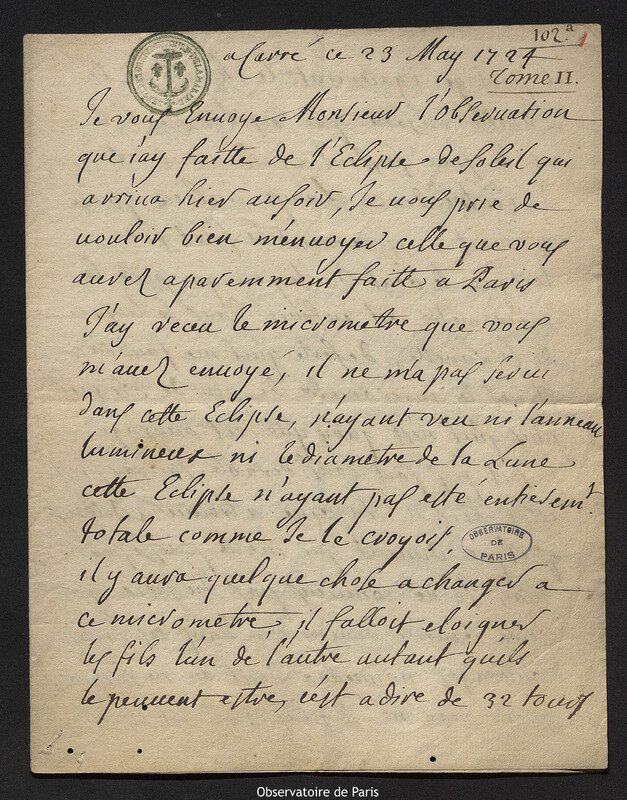 102.a 1
a Carré ce 23 May 1724
Tome II.
Je vous Envoye Monsieur l'Observation
que j'ay faitte de l'Eclipse de Soleil qui
arriva hier au soir, Je vous prie de
vouloir bien m'envoyer celle que vous
aurez aparemment faitt à Paris
J'ay receu le micrometre que vous
m'avez envoyé, il ne m'a pas servi
dans cette Eclipse, n'ayant veu ni l'anneau
lumineux ni le diametre de la Lune
cette Eclipse n'ayant pas esté entierem.t
totale comme Je le croyois.
OBSERVATOIRE
DE
PARIS
il y aura quelque chose a changer a
ce micrometre, il falloit eloigner
les fils l'un de l'autre autant qu'ils
le peuvent estre, c'est a dire de 32 tours
Observatoire de Paris